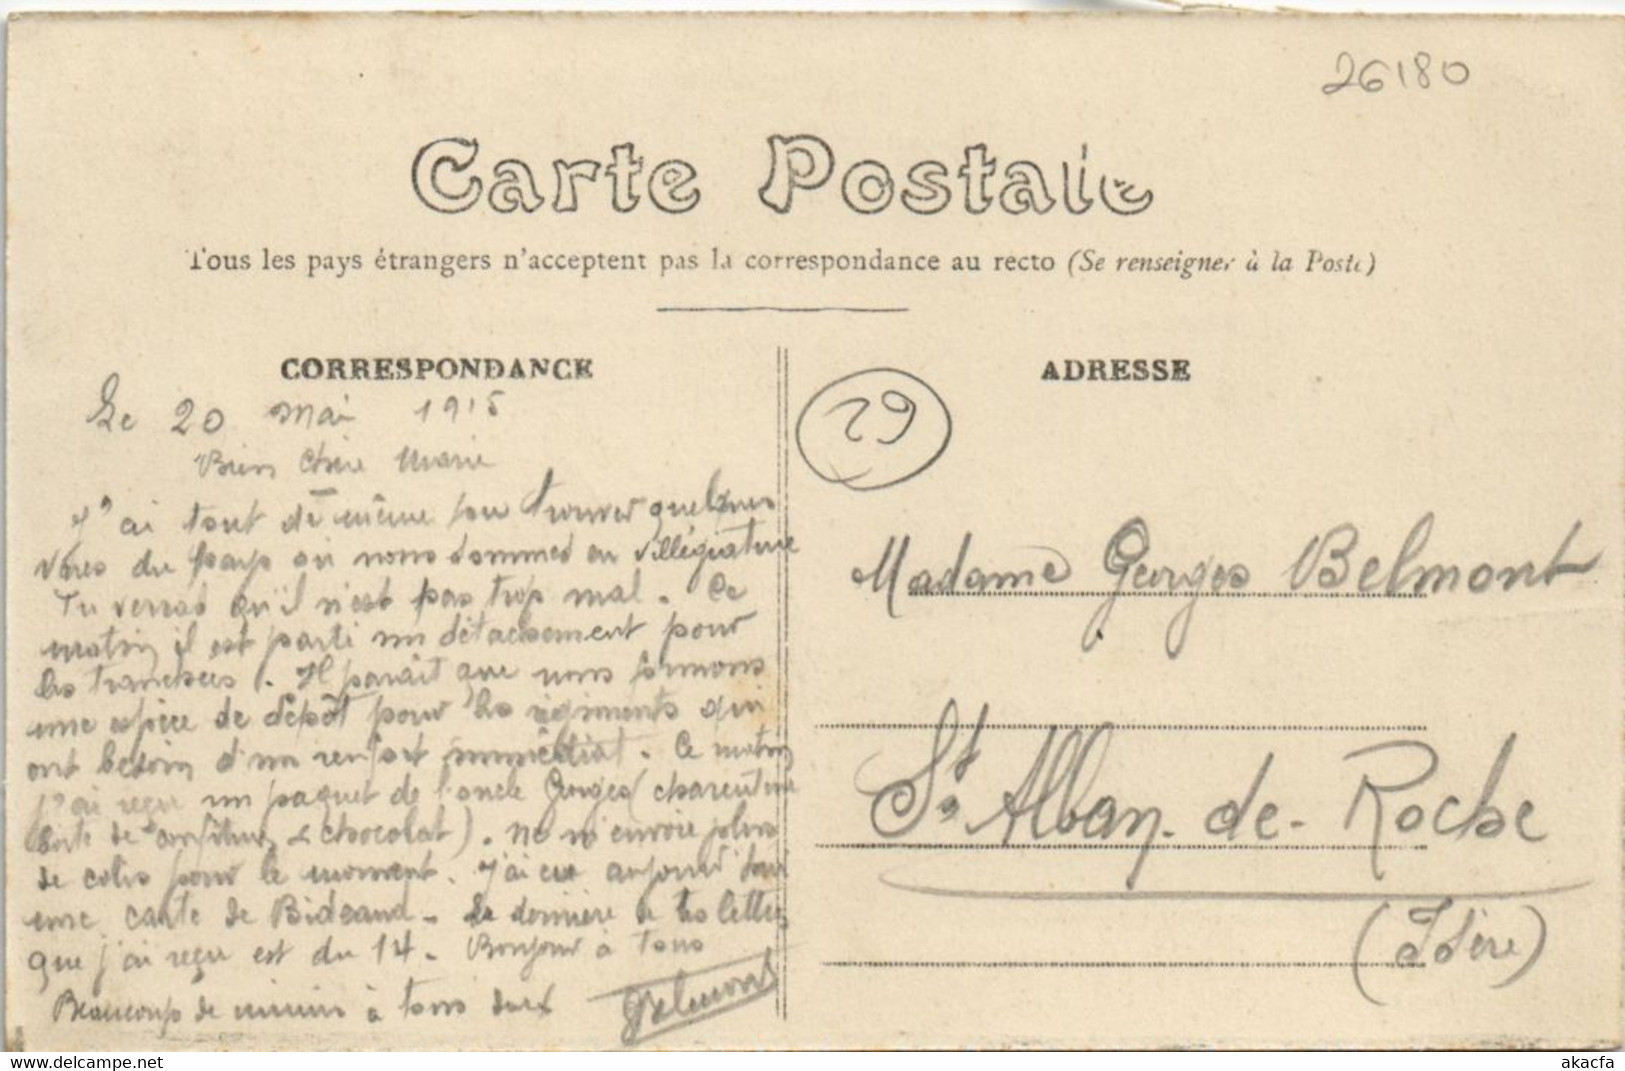 26180
Carte Postale
Tous les pays étrangers n'acceptent pas la correspondance au recto (Se renseigner à la Poste)
CORRESPONDANCE
Le 20 Mai 1915
Bien chère Marie
J'ai tout de même pu trouver quelques
vues du pays où nous sommes en villégiature
Tu verras qu'il n'est pas trop mal. Ce
matin il est parti un détachement pour
les tranchées. Il paraît que nous formons
une espèce de dépôt pour les régiments qui
ont besoin d'un renfort immédiat. Ce matin
j'ai reçu un paquet de l'oncle Georges (charcuterie
boîte de confiture & chocolat). Ne m'envoie plus
de colis pour le moment. J'ai eu aujourd'hui
une carte de Bideaud. La dernière de tes lettres
que j'ai reçu est du 14. Bonjour à tous
Beaucoup de mimis à tous deux
GBelmont
ADRESSE
29
Madame Georges Belmont
St Alban-de-Roche
(Isère)
https://www.delcampe.net
akacfa